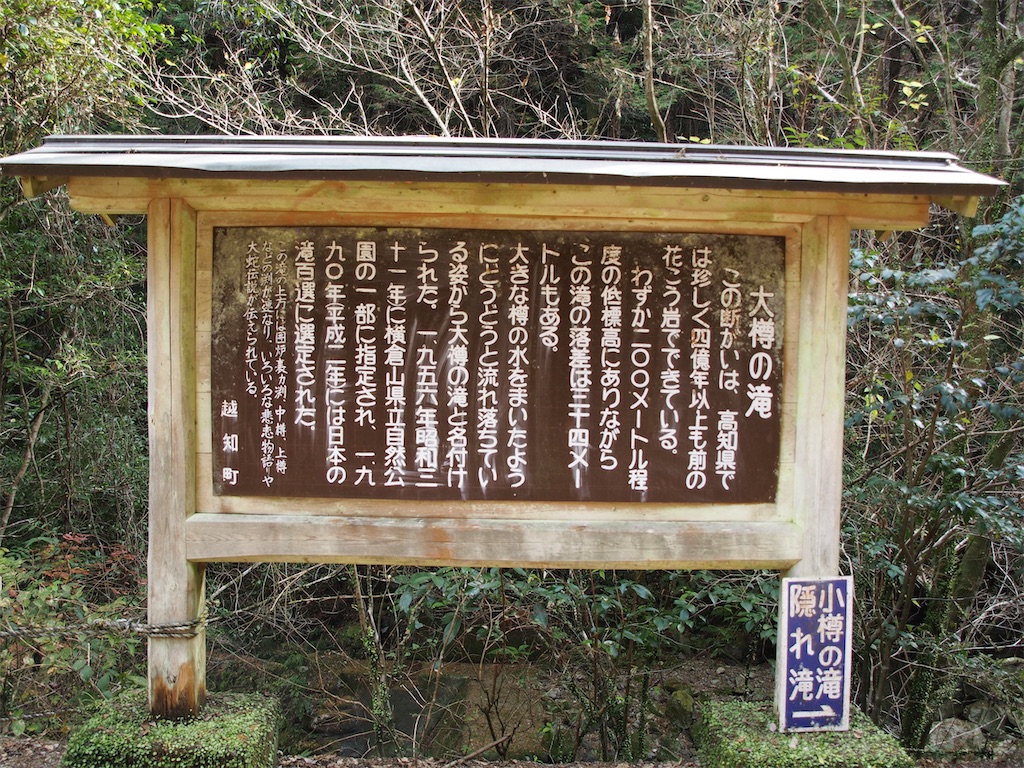 大樽の滝
この断がいは、高知県で
は珍しく四億年以上も前の
花こう岩でできている。
わずか二〇〇メートル程
度の低標高にありながら
この滝の落差は三十四メー
トルもある。
大きな樽の水をまいたよう
にとうとうと流れ落ちてい
る姿から大樽の滝と名付け
られた。一、九五六年昭和三
十一年に横倉山県立自然公
園の一部に指定され、一、九
九〇年平成二年には日本の
滝百選に選定された。
この滝の上方には囲炉裏ヵ渕、中樽、上樽
などの滝が連なり、いろいろな悲恋物語りや
大蛇伝説が伝えられている。
越知町
小樽の滝
隠れ滝
→